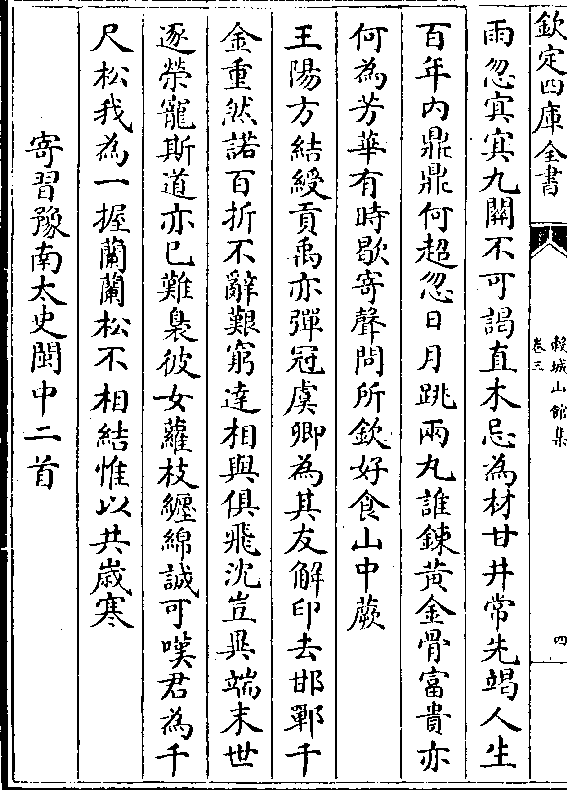 欽定四庫全書
穀城山館集
卷三
四
雨忽寘寘九關不可謁直木忌為材甘井常先竭人生
百年内鼎鼎何超忽日月跳兩丸誰鍊黄金骨富貴亦
何為芳華有時歇寄聲問所欽好食山中蕨
王陽方結綬貢禹亦彈冠虞卿為其友解印去邯鄲千
金重然諾百折不辭艱窮達相與俱飛沈豈異端末世
逐榮寵斯道亦已難裊彼女蘿枝纒綿誠可嘆君為千
尺松我為一握蘭蘭松不相結惟以共歲寒
寄習豫南太史閩中二首